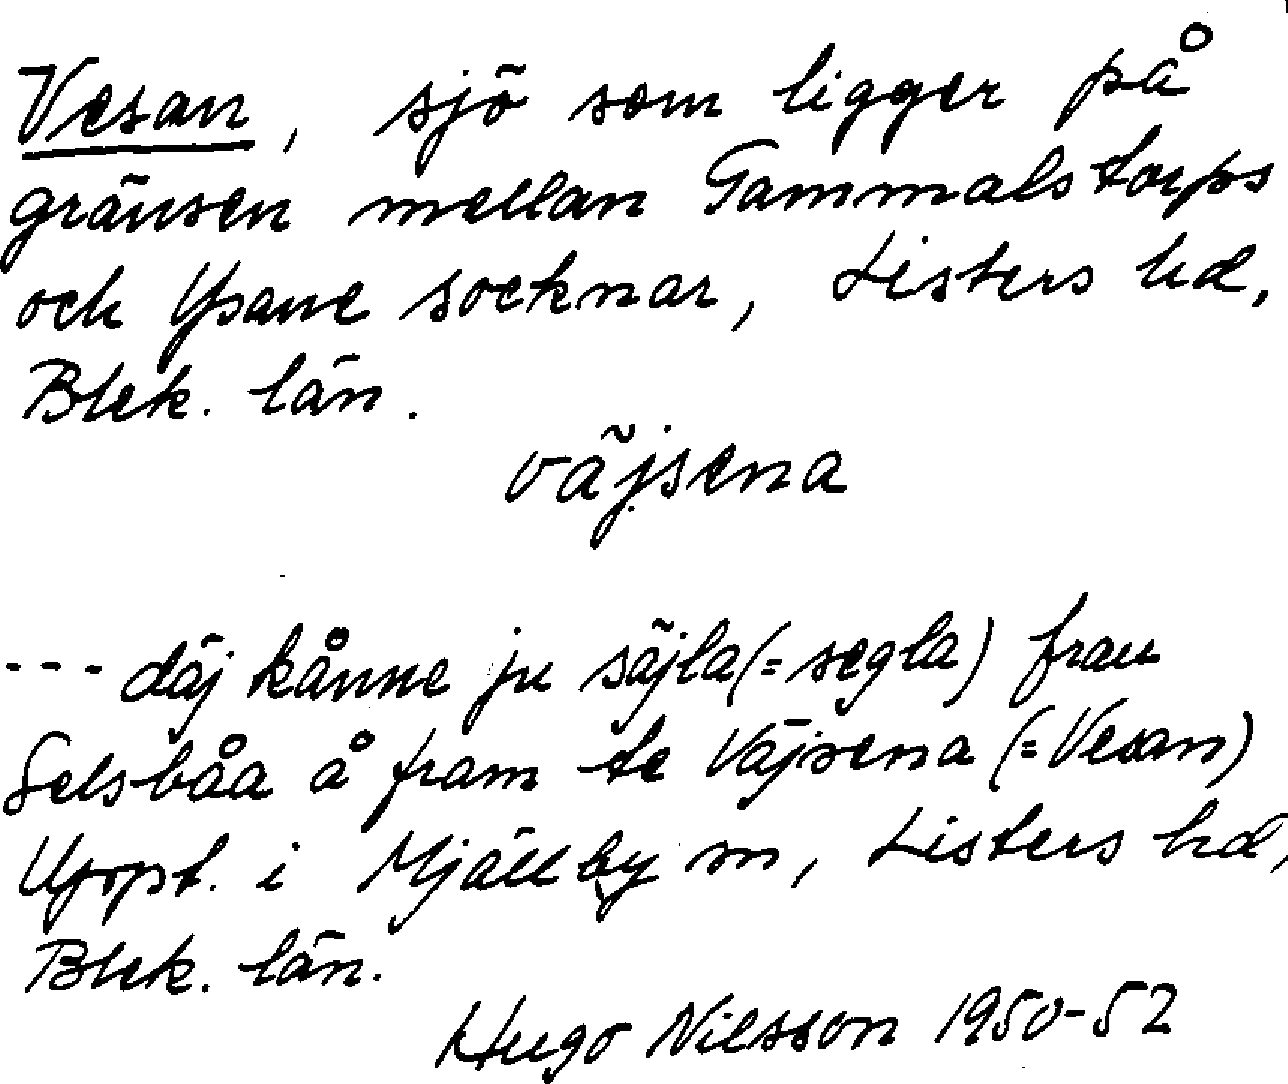 Vesan, sjö som ligger på
gränsen mellan Gammalstorps
och Ysane socknar, Listers hd,
Blek. län.
väjsena
--- däj kånne ju säjla (= segla) frau
Selsbåa å fram te Väjsena (= Vesan)
Uppt. i Mjällby sn, Listers hd,
Blek. län.
Hugo Nilsson 1950-52